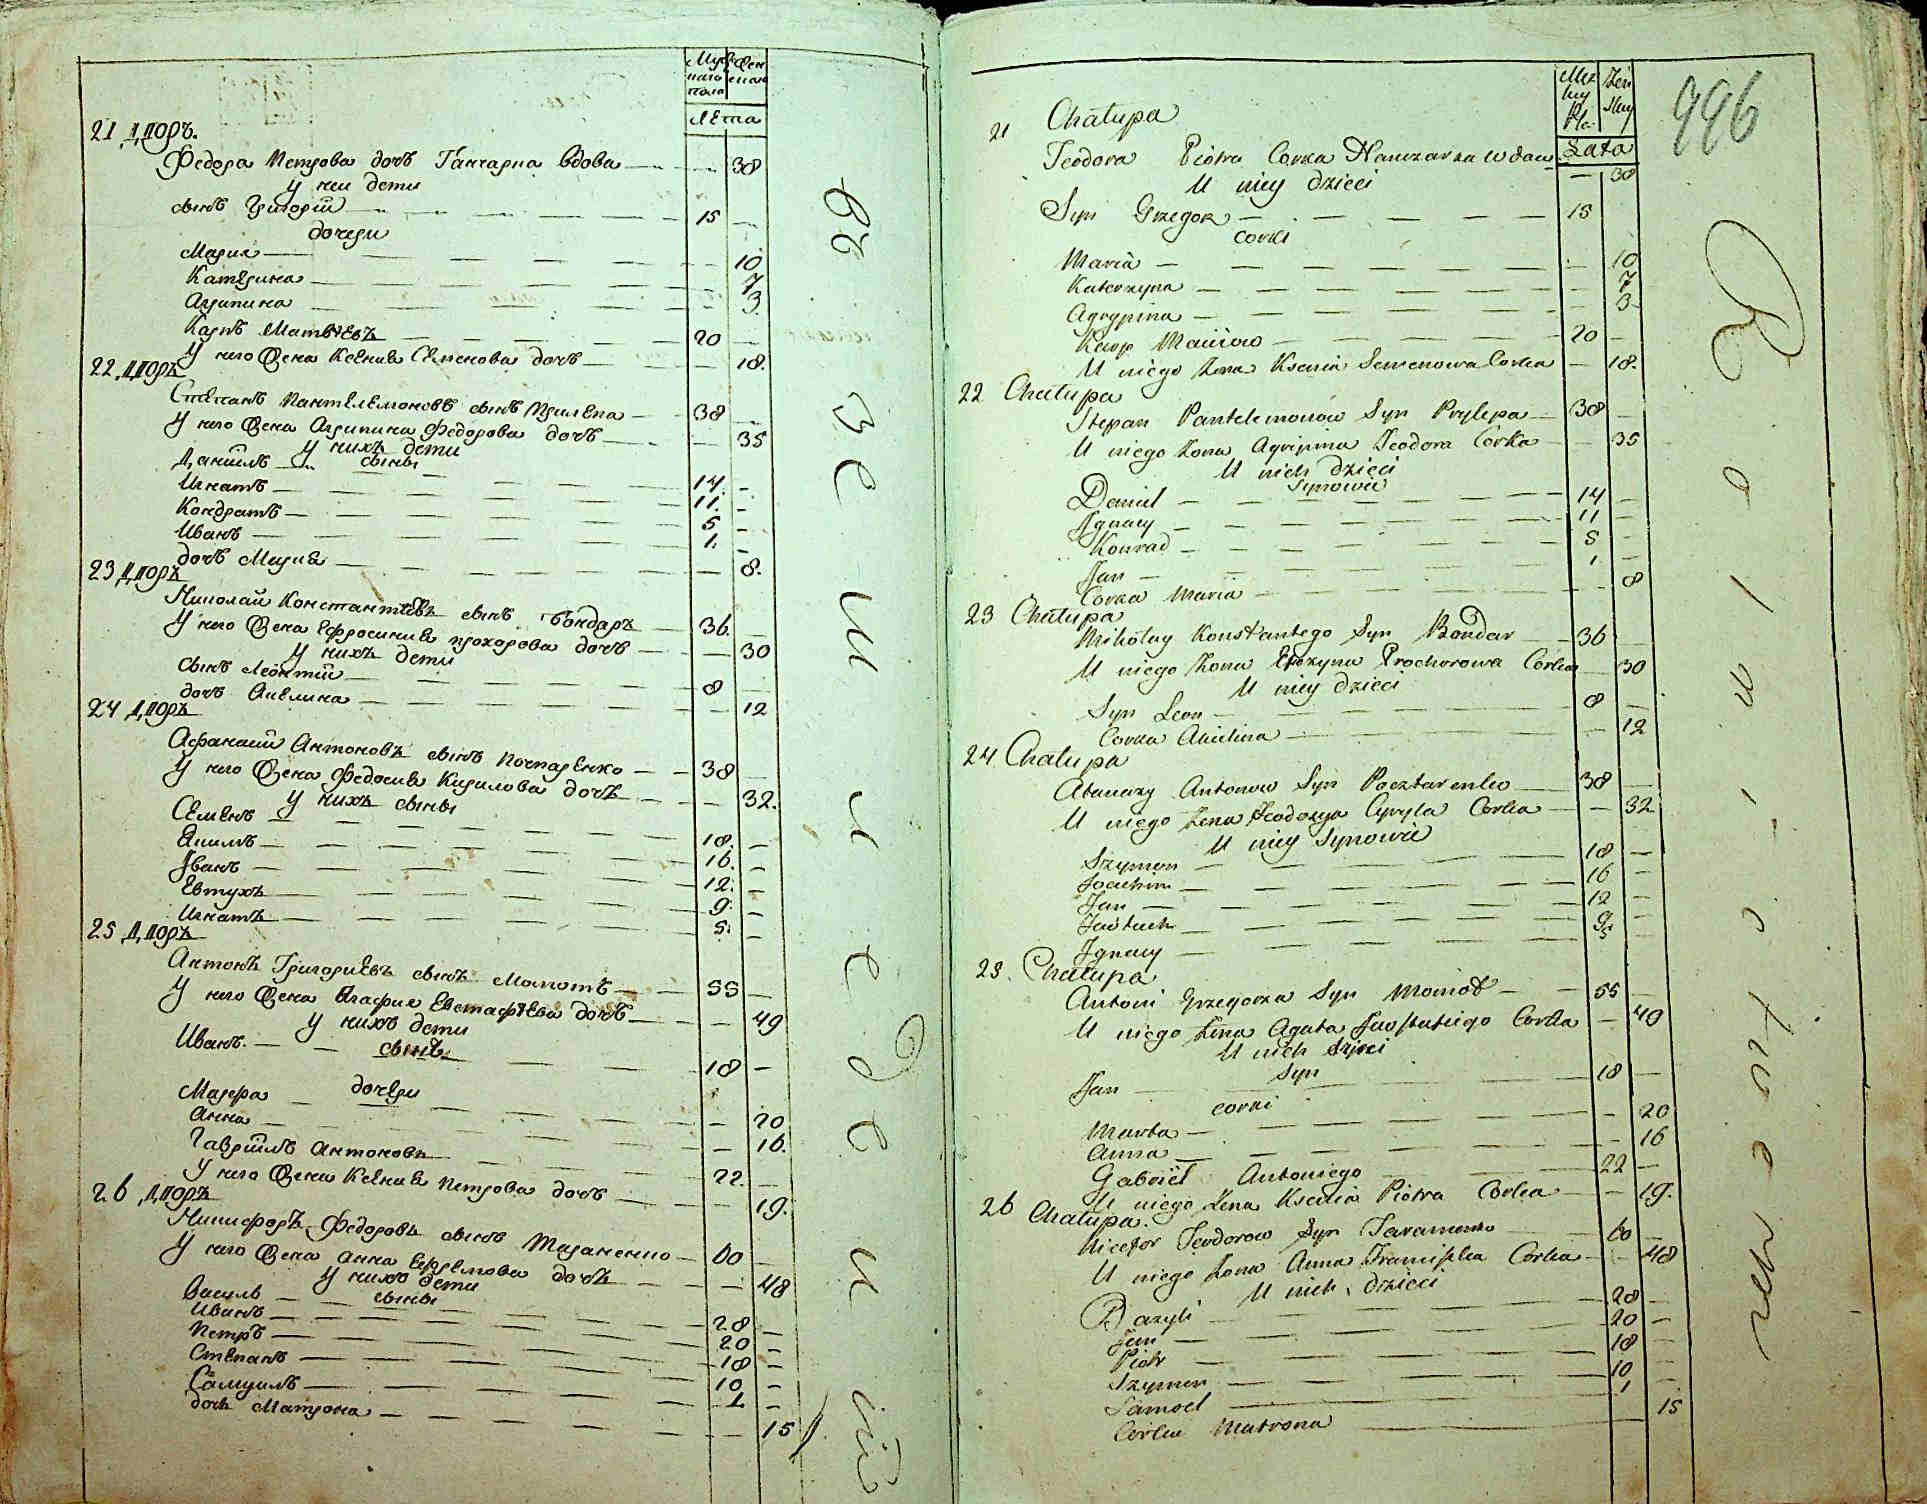 Муж
наго
пола
Жен
скаго
Лѣта
21 Дворъ.
Федора Петрова дочъ Ганчарка вдова 38
У неи дети
сынъ Григорій 15
дочери
Мария 10
Катерина 7
Агрипина 3
Карпъ Матвѣевъ 20
У него жена Ксения Семенова дочъ 18.
22 Дворъ
Степанъ Пантелемоновъ сынъ Прилепа 38
У него жена Агрипина Федорова дочъ 35
У нихъ дети
сыны
Даниилъ 14.
Игнатъ 11.
Кондратъ 5
Иванъ 1.
дочъ Мария 8.
23 Дворъ
Николай Константиевъ сынъ Бондаръ 36.
У него жена Ефросиния Прохорова дочъ 30
У нихъ дети
сынъ Леонтий 8
дочъ Акелина 12
24 Дворъ
Афанасий Антоновъ сынъ Почтаренко 38
У него жена Федосия Кирилова дочъ 32.
У нихъ сыны
Семенъ 18.
Екимъ 16.
Іванъ 12.
Евтухъ 9.
Игнатъ 5.
25 Дворъ
Антонъ Григориевъ сынъ Момотъ 55
У него жена Агафия Евстафиева дочъ 49
У нихъ дети
сынъ
Иванъ 18
дочери
Марфа 20
Анна 16.
Гаврйилъ Антоновъ 22.
У него жена Ксения Петрова дочъ 19.
26 Дворъ
Никифоръ Федоровъ сынъ Тараненко 60
У него жена Анна Ефремова дочъ 48
У нихъ дети
сыны
Василь 28
Иванъ 20
Петръ 18
Степанъ 10
Самуилъ 1
дочъ Матрона 15
996
Męz
kiy
Płci
Żen
skiy
Lata
21 Chałupa
Teodora Piotra Corka Hanczarka wdowa 38
U niey dzieci
Syn Grzegorz 15
corki
Maria 10
Katerzyna 7
Agrypina 3
Karp Maciiow 20
U niego Zona Ksenia Semenowa Corka 18.
22 Chałupa
Stepan Pantelemonow Syn Prylepa 38
U niego Zona Agripina Teodora Corka 35
U nich dzieci
Synowie
Daniel 14
Jgnacy 11
Konrad 5
Jan 1
Corka Maria 8
23 Chałupa
Mikołay Konstantego Syn Bondar 36
U niego Zona Efrozyna Prochorowa Corka 30
U niey dzieci
Syn Leon 8
Corka Akielina 12
24 Chałupa
Atanazy Antonow Syn Pocztarenko 38
U niego Zena Teodozya Cyryla Corka 32
U niey Synowie
Szymon 18
Joachim 16
Jan 12
Jewtuch 9
Jgnacy 5
25. Chałupa
Antoni Grzegorza Syn Momot 55
U niego Zena Agata Jewstachiego Corka 49
U nich dzieci
Syn
Jan 18
corki
Marta 20
Anna 16
Gabriel Antoniego 22
U niego Zena Ksenia Piotra Corka 19.
26 Chałupa.
Nicefor Teodorow Syn Taranenko 60
U niego Zona Anna Franciszka Corka 48
U nich dzieci
Bazyli 28
Jan 20
Piotr 18
Szymon 10
Samoel 1
Corka Matrona 15